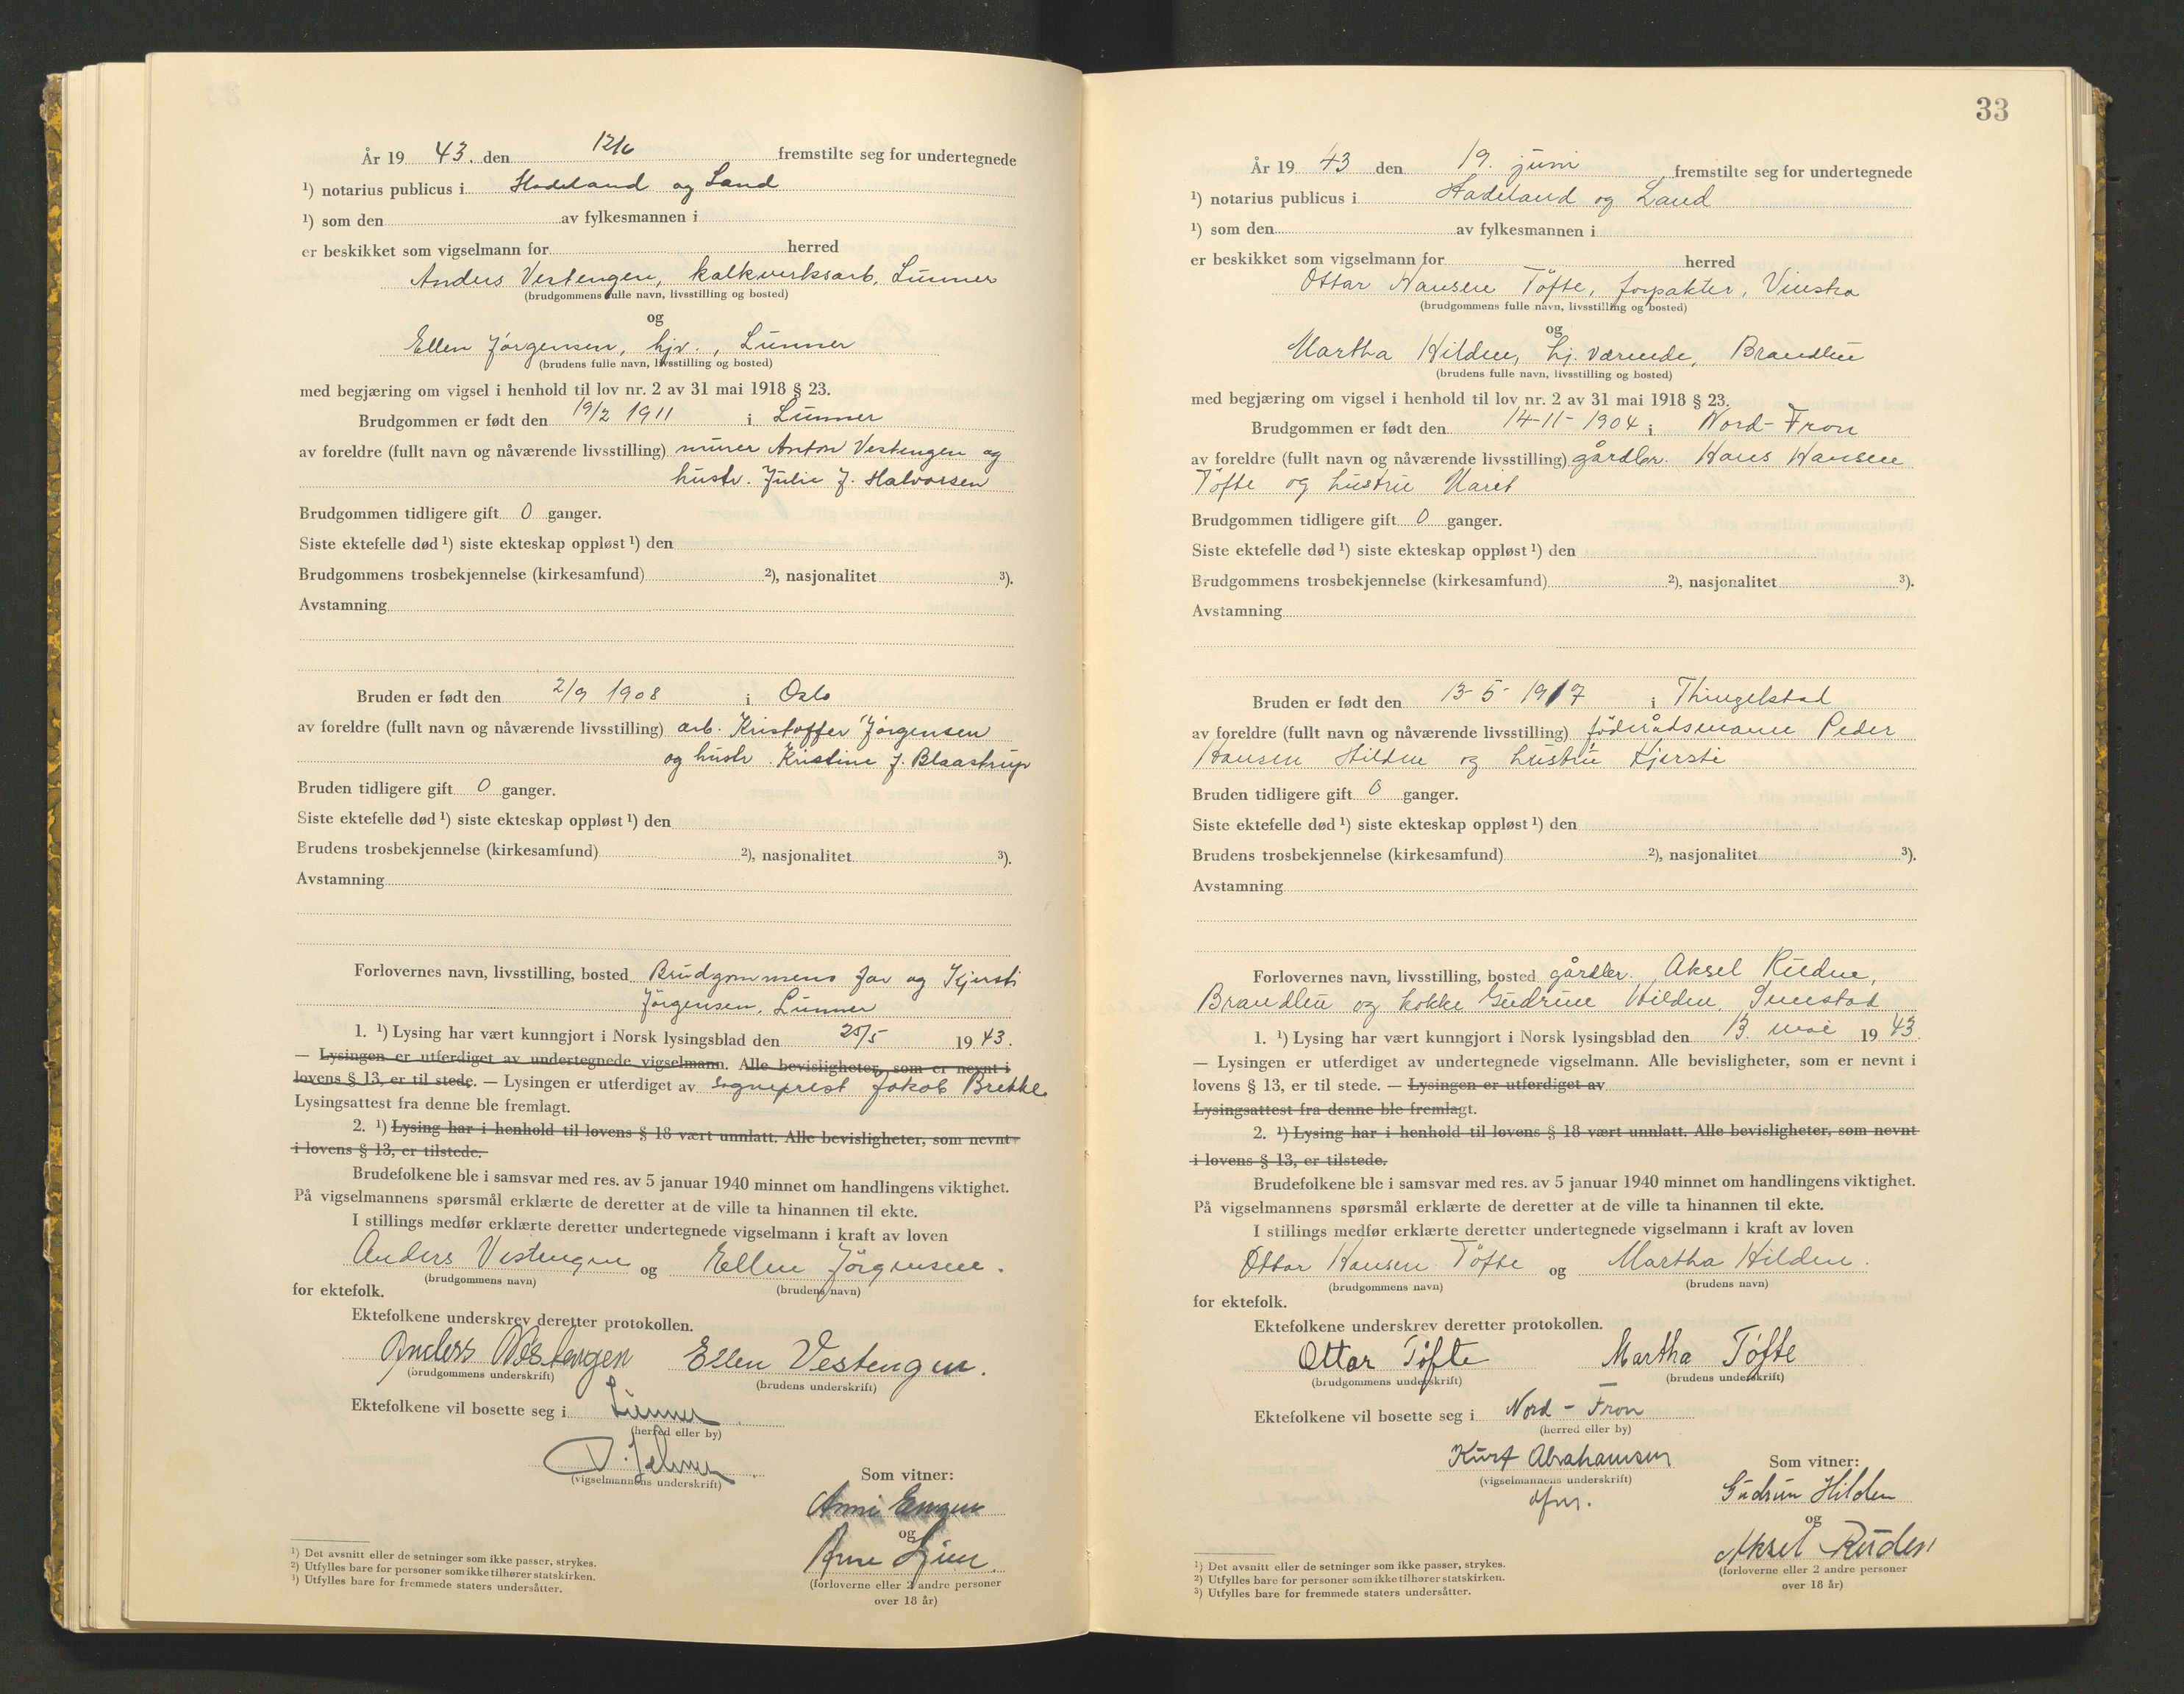 År 19 43. den 12/6 fremstilte seg for undertegnede
¹) notarius publicus i Hadeland og Land
¹) som den av fylkesmannen i
er beskikket som vigselmann for herred
Anders Vestengen, kalkverksarb, Lunner
(brudgommens fulle navn, livsstilling og bosted)
og
Ellen Jørgensen, hjv., Lunner
(brudens fulle navn, livsstilling og bosted)
med begjæring om vigsel i henhold til lov nr. 2 av 31 mai 1918 § 23.
Brudgommen er født den 19/2 1911 i Lunner
av foreldre (fullt navn og nåværende livsstilling) murer Anton Vestengen og
hustr. Julie f. Halvorsen
Brudgommen tidligere gift 0 ganger.
Siste ektefelle død ¹) siste ekteskap oppløst ¹) den
Brudgommens trosbekjennelse (kirkesamfund) ²), nasjonalitet ³).
Avstamning
Bruden er født den 2/9 1908 i Oslo
av foreldre (fullt navn og nåværende livsstilling) arb. Kristoffer Jørgensen
og hustr. Kristine f. Blaastrup
Bruden tidligere gift 0 ganger.
Siste ektefelle død ¹) siste ekteskap oppløst ¹) den
Brudens trosbekjennelse (kirkesamfund) ²), nasjonalitet ³).
Avstamning
Forlovernes navn, livsstilling, bosted Brudgommens far og Kjersti
Jørgensen, Lunner
1. ¹) Lysing har vært kunngjort i Norsk lysingsblad den 25/5 19 43.
— Lysingen er utferdiget av undertegnede vigselmann. Alle bevisligheter, som er nevnt i
lovens § 13, er til stede. — Lysingen er utferdiget av sogneprest Jakob Brekke
Lysingsattest fra denne ble fremlagt.
2. ¹) Lysing har i henhold til lovens § 18 vært unnlatt. Alle bevisligheter, som nevnt
i lovens § 13, er tilstede.
Brudefolkene ble i samsvar med res. av 5 januar 1940 minnet om handlingens viktighet.
På vigselmannens spørsmål erklærte de deretter at de ville ta hinannen til ekte.
I stillings medfør erklærte deretter undertegnede vigselmann i kraft av loven
Anders Vestengen og Ellen Jørgensen.
(brudgommens navn) (brudens navn)
for ektefolk.
Ektefolkene underskrev deretter protokollen.
Anders Vestengen Ellen Vestengen.
(brudgommens underskrift) (brudens underskrift)
Ektefolkene vil bosette seg i Lunner
(herred eller by)
(vigselmannens underskrift)
Som vitner:
Anni Engen
og
Arne
(forloverne eller 2 andre personer
over 18 år)
¹) Det avsnitt eller de setninger som ikke passer, strykes.
²) Utfylles bare for personer som ikke tilhører statskirken.
³) Utfylles bare for fremmede staters undersåtter.
33
År 19 43 den 19. juni fremstilte seg for undertegnede
¹) notarius publicus i Hadeland og Land
¹) som den av fylkesmannen i
er beskikket som vigselmann for herred
Ottar Hansen Töfte, forpakter, Vinstra
(brudgommens fulle navn, livsstilling og bosted)
og
Martha Hilden, hj. værende, Brandbu
(brudens fulle navn, livsstilling og bosted)
med begjæring om vigsel i henhold til lov nr. 2 av 31 mai 1918 § 23.
Brudgommen er født den 14-11-1904 i Nord-Fron
av foreldre (fullt navn og nåværende livsstilling) gårdbr. Hans Hansen
Töfte og hustru Marit
Brudgommen tidligere gift 0 ganger.
Siste ektefelle død ¹) siste ekteskap oppløst ¹) den
Brudgommens trosbekjennelse (kirkesamfund) ²), nasjonalitet ³).
Avstamning
Bruden er født den 13-5-1917 i Thingelstad
av foreldre (fullt navn og nåværende livsstilling) föderådsmann Peder
Hansen Hilden og hustru Kjersti
Bruden tidligere gift 0 ganger.
Siste ektefelle død ¹) siste ekteskap oppløst ¹) den
Brudens trosbekjennelse (kirkesamfund) ²), nasjonalitet ³).
Avstamning
Forlovernes navn, livsstilling, bosted gårdbr. Aksel Ruden,
Brandbu og kokke Gudrun Hilden,
1. ¹) Lysing har vært kunngjort i Norsk lysingsblad den 13. mai 19 43.
— Lysingen er utferdiget av undertegnede vigselmann. Alle bevisligheter, som er nevnt i
lovens § 13, er til stede. — Lysingen er utferdiget av
Lysingsattest fra denne ble fremlagt.
2. ¹) Lysing har i henhold til lovens § 18 vært unnlatt. Alle bevisligheter, som nevnt
i lovens § 13, er tilstede.
Brudefolkene ble i samsvar med res. av 5 januar 1940 minnet om handlingens viktighet.
På vigselmannens spørsmål erklærte de deretter at de ville ta hinannen til ekte.
I stillings medfør erklærte deretter undertegnede vigselmann i kraft av loven
Ottar Hansen Töfte og Martha Hilden.
(brudgommens navn) (brudens navn)
for ektefolk.
Ektefolkene underskrev deretter protokollen.
Ottar Töfte Martha Töfte
(brudgommens underskrift) (brudens underskrift)
Ektefolkene vil bosette seg i Nord-Fron
(herred eller by)
Kurt Abrahamsen
(vigselmannens underskrift)
dfm.
Som vitner:
Gudrun Hilden
og
Aksel Ruden
(forloverne eller 2 andre personer
over 18 år)
¹) Det avsnitt eller de setninger som ikke passer, strykes.
²) Utfylles bare for personer som ikke tilhører statskirken.
³) Utfylles bare for fremmede staters undersåtter.